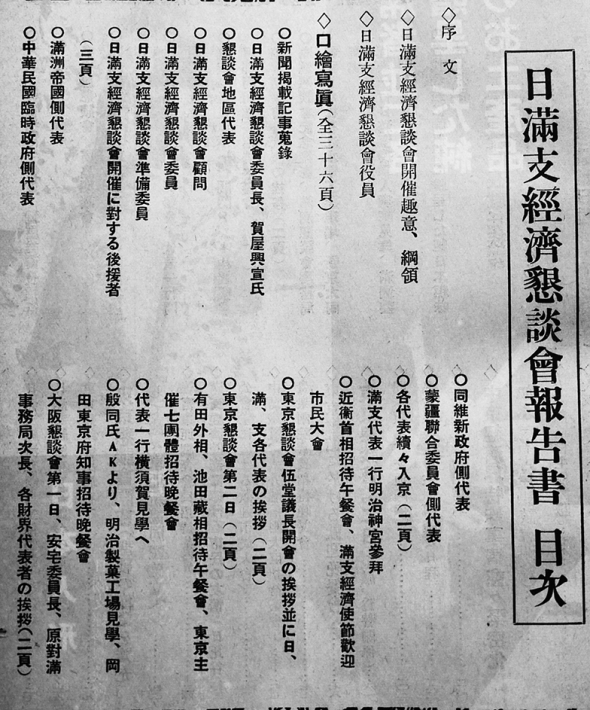 日滿支經濟懇談會報告書 目次
◇序文
◇日滿支經濟懇談會開催趣意、綱領
◇日滿支經濟懇談會役員
◇口繪寫眞(全三十六頁)
○新聞揭載記事蒐錄
○日滿支經濟懇談會委員長、賀屋興宣氏
○懇談會地區代表
○日滿支經濟懇談會顧問
○日滿支經濟懇談會委員
○日滿支經濟懇談會準備委員
○日滿支經濟懇談會開催に對する後援者
(三頁)
○滿洲帝國側代表
○中華民國臨時政府側代表
○同維新政府側代表
○蒙疆聯合委員會側代表
○各代表續々入京(二頁)
○滿支代表一行明治神宮參拜
○近衞首相招待午餐會、滿支經濟使節歡迎
市民大會
○東京懇談會伍堂議長開會の挨拶並に日、
滿、支各代表の挨拶(二頁)
○東京懇談會第二日(二頁)
○有田外相、池田藏相招待午餐會、東京主
催七團體招待晩餐會
○代表一行橫須賀見學へ
○殷同氏AKより、明治製菓工場見學、岡
田東京府知事招待晩餐會
○大阪懇談會第一日、安宅委員長、原對滿
事務局次長、各財界代表者の挨拶(二頁)